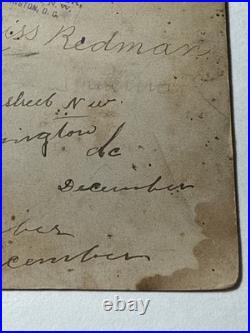 N. W.
INGTON, D. C.
iss Redman
street N.W.
ington
dc
December
ber
cember